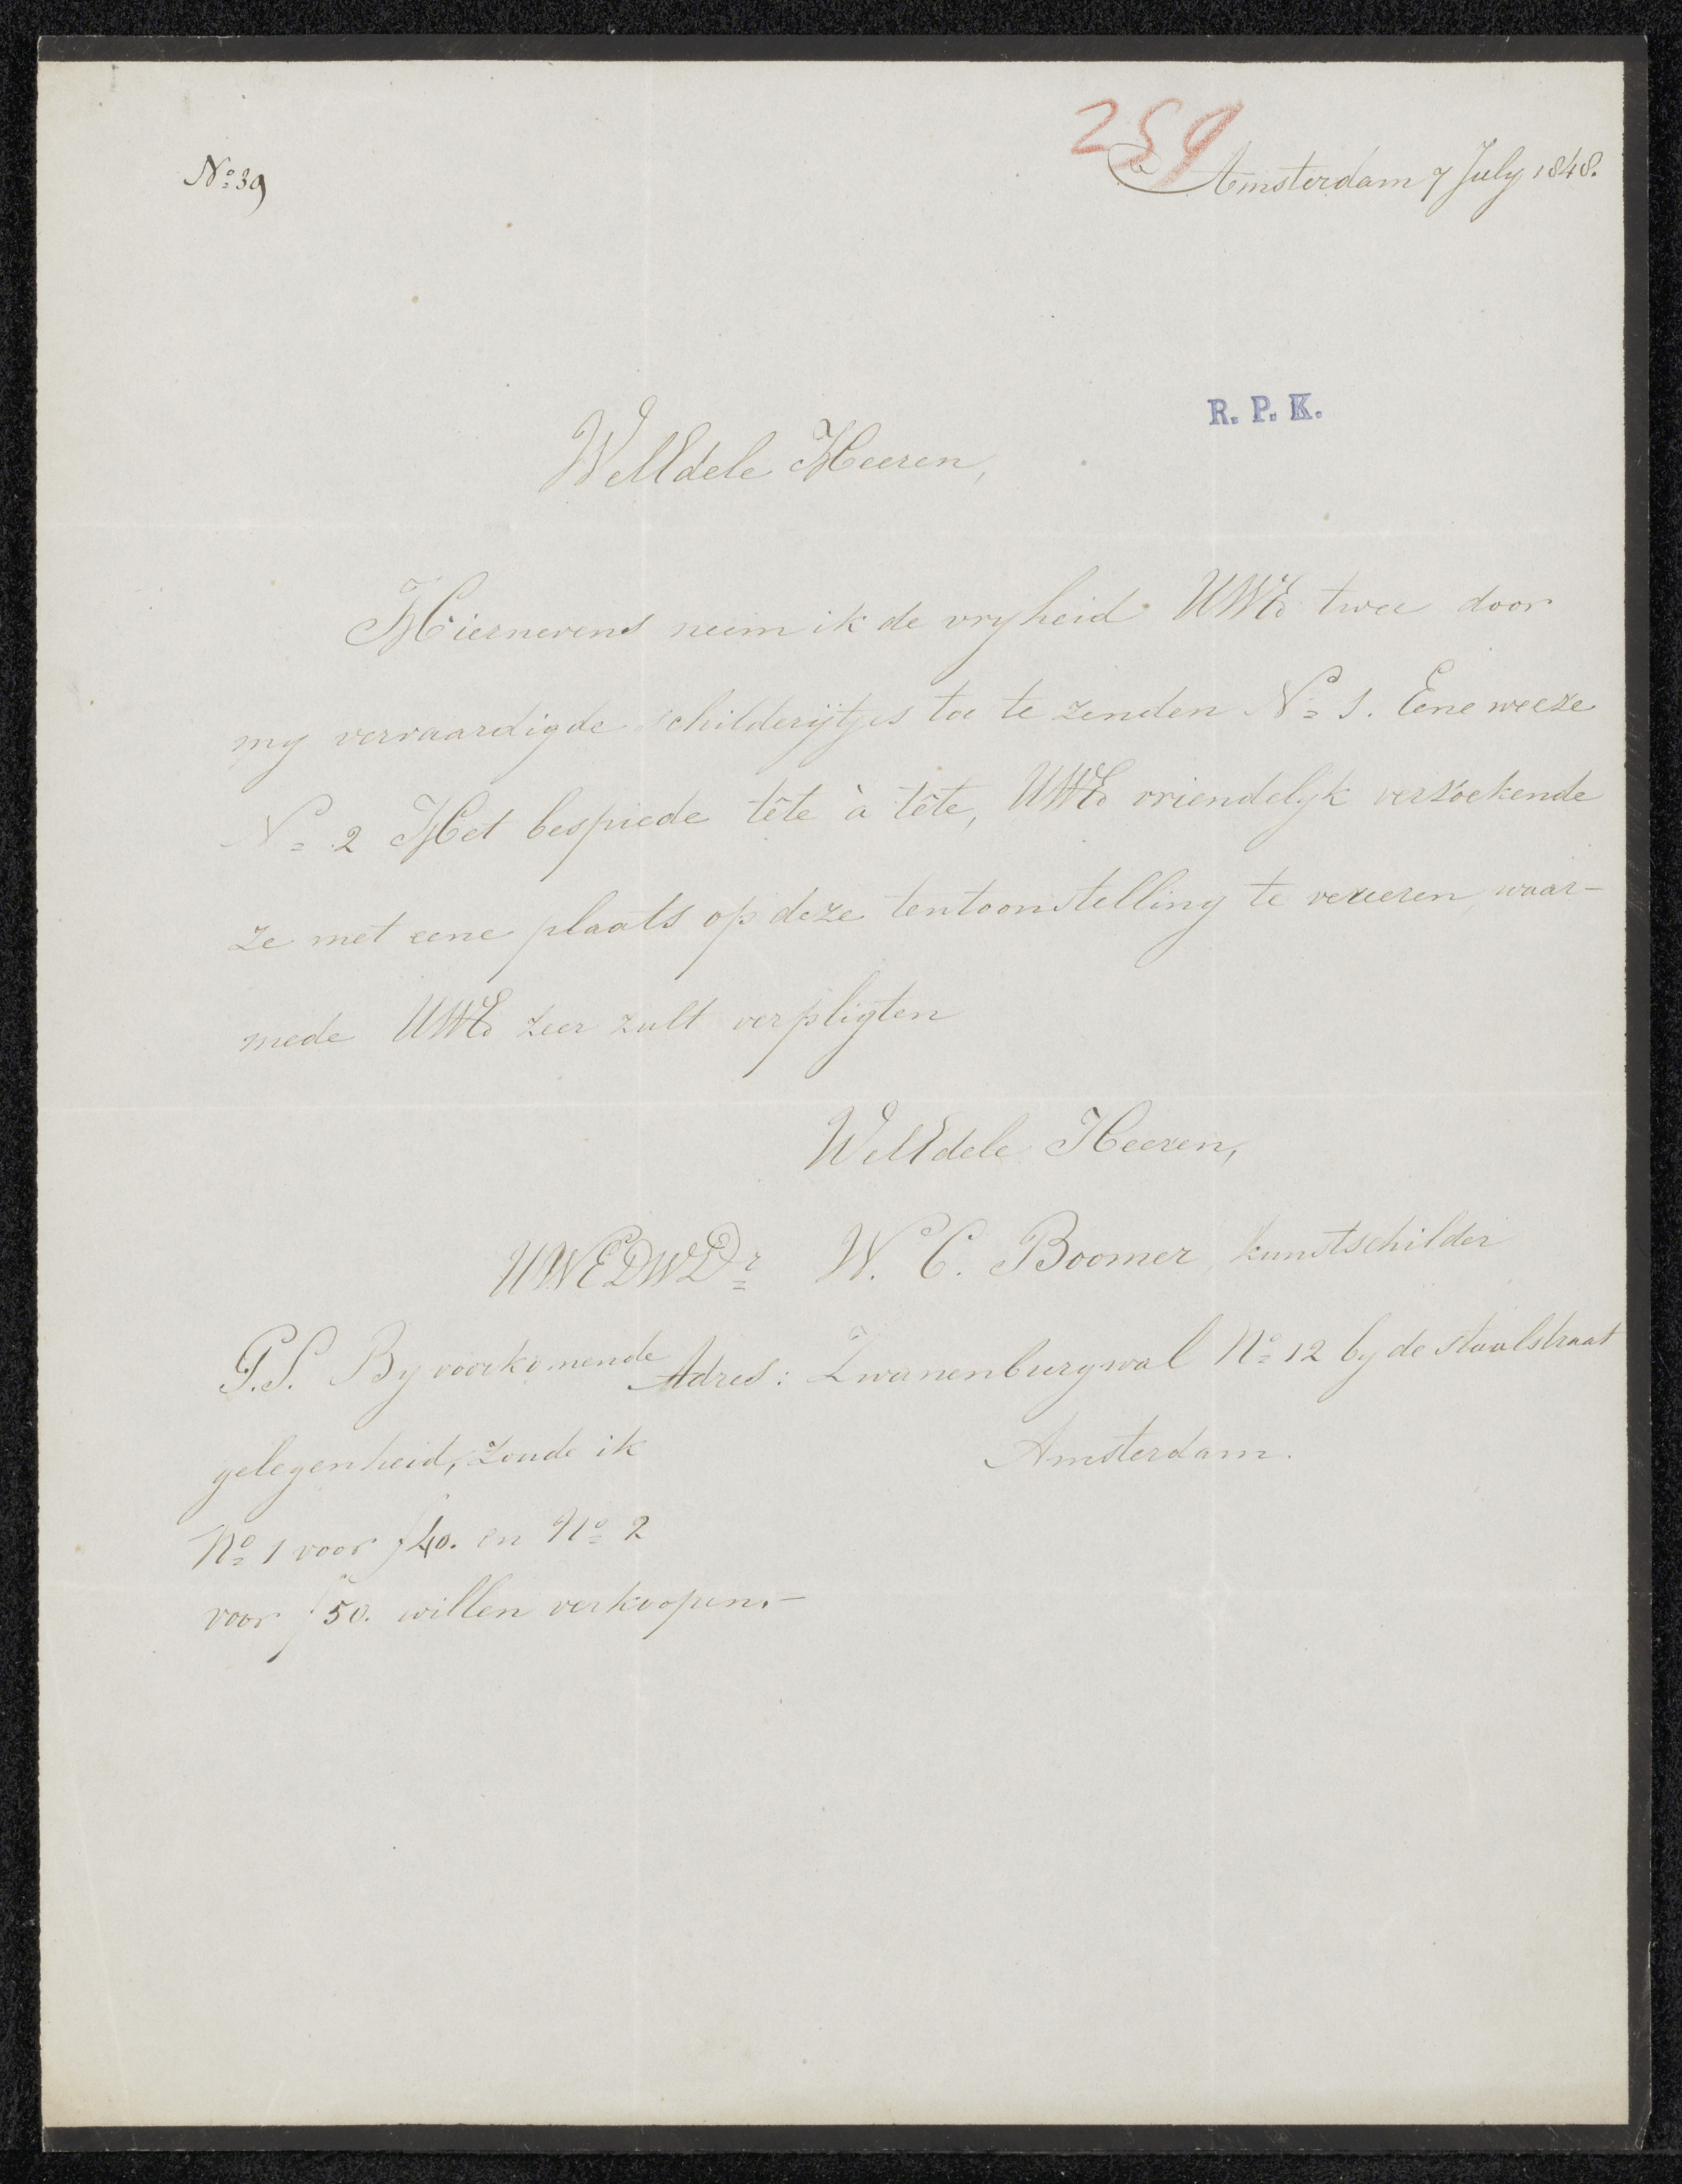 259
Nº 39
Amsterdam 7 July 1848.
R. P. K.
WelEdele Heeren,
Hiernevens neem ik de vryheid UWEd twee door
my vervaardigde schilderijtjes toe te zenden Nº 1. Eene weeze
Nº 2 Het bespiede tête à tête, UWEd vriendelyk verzoekende
ze met eene plaats op deze tentoonstelling te vereeren, waar-
mede UWEd zeer zult verpligten
WelEdele Heeren,
UWEDWDr W. C. Boomer kunstschilder
P.S. By voorkomende
Adres: Zwanenburgwal Nº 12 by de Staalstraat
Amsterdam.
gelegenheid, zoude ik
Nº 1 voor ƒ40. en Nº 2
voor ƒ50. willen verkoopen.-